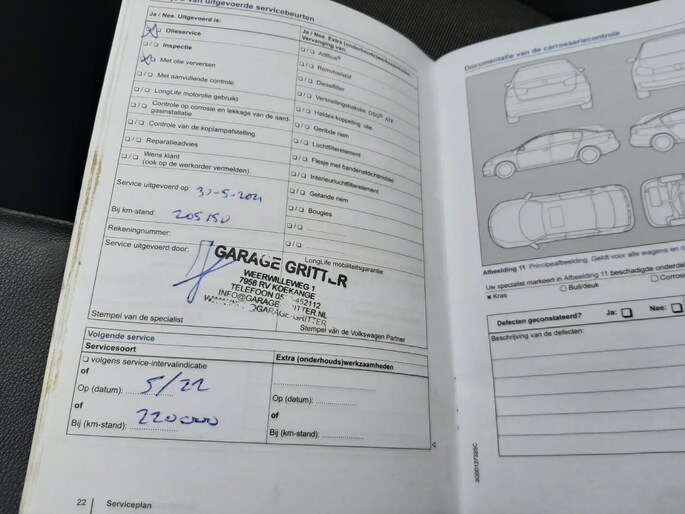 van uitgevoerde servicebeurten
Ja / Nee. Uitgevoerd is:
❑ / ❑ Olieservice
❑ / ❑ Inspectie
❑ / ❑ Met olie verversen
❑ / ❑ Met aanvullende controle
❑ / ❑ LongLife motorolie gebruikt
❑ / ❑ Controle op corrosie en lekkage van de aard-
gasinstallatie
❑ / ❑ Controle van de koplampafstelling
❑ / ❑ Reparatieadvies
❑ / ❑ Wens klant
(ook op de werkorder vermelden)
Ja / Nee. Extra (onderhouds)werkzaamheden
Vervanging van:
❑ / ❑ AdBlue®
❑ / ❑ Remvloeistof
❑ / ❑ Dieselfilter
❑ / ❑ Versnellingsbakolie: DSG® ATF
❑ / ❑ Haldex-koppeling olie
❑ / ❑ Geribde riem
❑ / ❑ Luchtfilterelement
❑ / ❑ Flesje met bandenafdichtmiddel
❑ / ❑ Interieurluchtfilterelement
❑ / ❑ Getande riem
❑ / ❑ Bougies
❑ / ❑
❑ / ❑
Service uitgevoerd op: 31-5-2021
Bij km-stand: 205150
Rekeningnummer:
Service uitgevoerd door:
LongLife mobiliteitsgarantie:
GARAGE GRITTER
WEERWILLEWEG 1
7958 RV KOEKANGE
TELEFOON 452112
Stempel van de specialist
Stempel van de Volkswagen Partner
Volgende service
Servicesoort
❑ volgens service-intervalindicatie
of
Op (datum): 5/22
of
Bij (km-stand): 220000
Extra (onderhouds)werkzaamheden
Op (datum):
of
Bij (km-stand):
22 Serviceplan
Documentatie van de carrosseriecontrole
Afbeelding 11 Principeafbeelding. Geldt voor alle wagens en c
Uw specialist markeert in Afbeelding 11 beschadigde onderde
× Kras
○ Buil/deuk
□ Corrosie
Defecten geconstateerd? Ja: ❑ Nee: ❑
Beschrijving van de defecten: